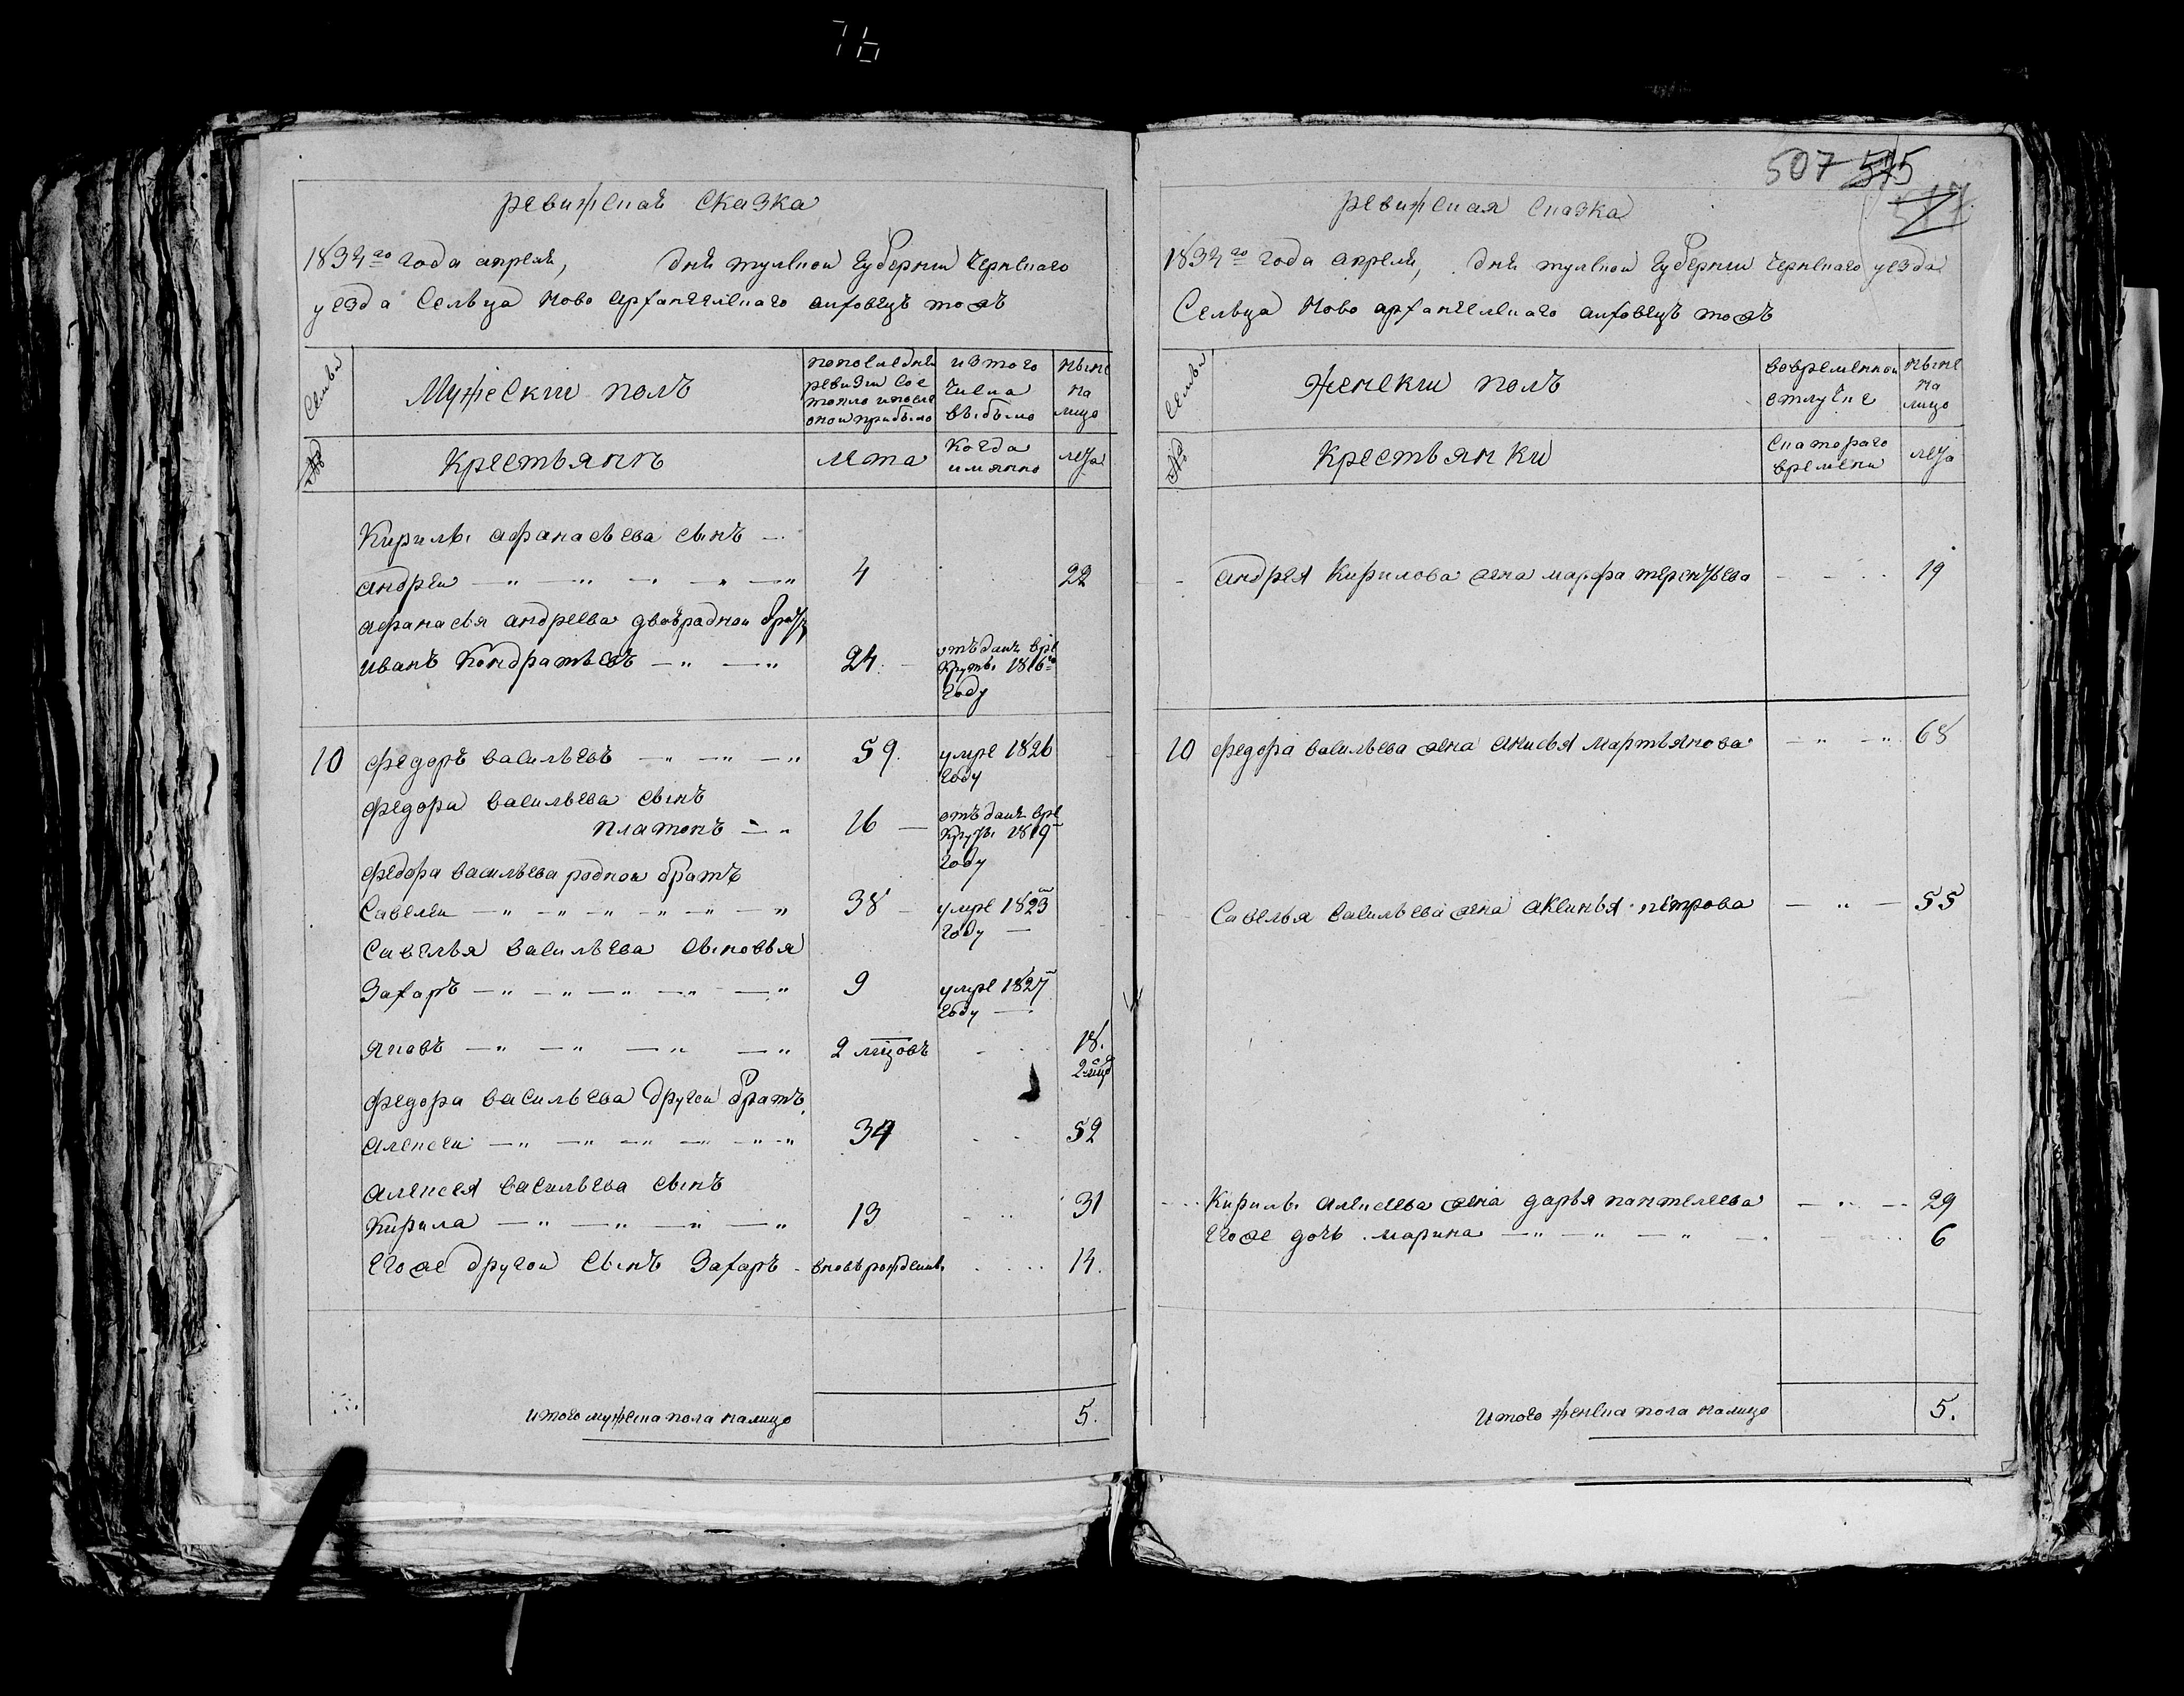 7b
ревижская сказка
1834го года апреля, дня тулскои Губернии Чернскаго
уезда Сельца Ново архангелскаго алховецъ тожъ
Семьи
Мужескии полъ
попоследней ревизии сос тояло ипосле онои прибыло
изтого числа выбыло
ныне на лицо
№
Крестьянъ
лета
Когда имянно
лета
Кирилы афанасьева сынъ
андреи 4 22
афанасья андреева двоюрадной братъ
иванъ Кондратьевъ 24 отъданъ врекруты 1816го году
10 федоръ васильевъ 59. умре 1826 году
федора васильева сынъ
платонъ 16 отъданъ врекруты 1819 году
федора васильева родной братъ
Савелеи 38 умре 1823 году
Савелья васильева сыновья
Захаръ 9 умре 1827 году
Яковъ 2 мцовъ 18. 2 мцо
федора васильева другой братъ
алексеи 34 52
алексея васильева сынъ
Кирила 13 31
Егоже другои сынъ Захаръ вновьрожденны 14.
итого мужеска пола налицо 5.
507 515
ревижская сказка
1834го года апреля, дня тулскои Губернии Чернскаго уезда
Сельца Ново архангелскаго алховецъ тожъ
Семьи
Женскии полъ
вовременнои отлучке
ныне на лицо
№
Крестьянки
Скатораго времени
лета
андрея Кирилова жена марфа терентьева 19
10 федора васильева жена анисья Мартьянова 68
Савелья васильева жена аксинья петрова 55
Кирилы алексеева жена дарья пантелеева 29
Егоже дочь марина 6
итого женска пола налицо 5.